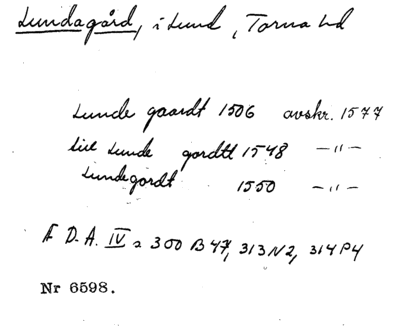 Lundagård, i Lund, Torna hd
Lunde gaardt 1506 avskr. 1577
till Lunde gordtt 1548 —"—
Lundegordt 1550 —"—
F D.A. IV a 300 B 47, 313 N 2, 314 P 4
Nr 6598.